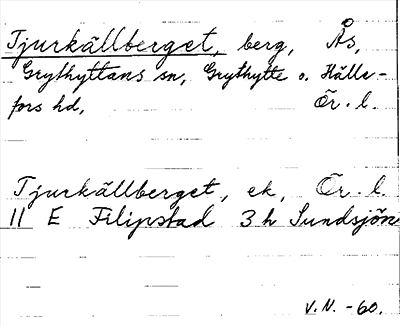 Tjurkällberget, berg, Ås,
Grythyttans sn, Grythytte o. Hälle-
fors hd, Ör. l.
Tjurkällberget, ek, Ör. l.
11 E Filipstad 3 h Sundsjön
V.N. -60.